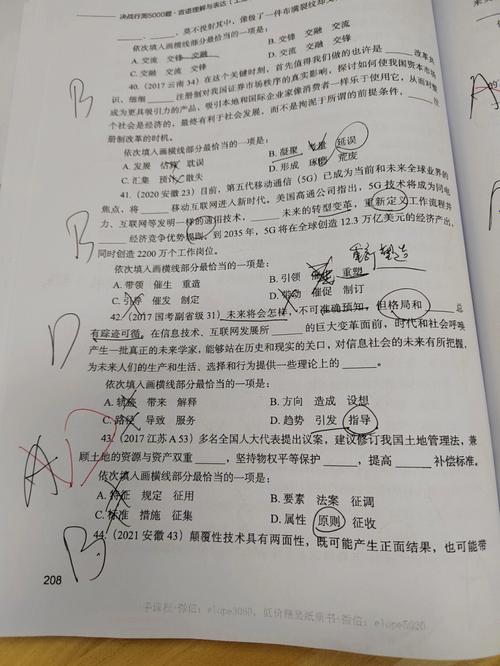 决战行测5000题·言语理解与表达（上
莫不投射其中，像极了一件布满裂纹却又
依次填入画横线部分最恰当的一项是：
A. 交流 交锋 交融
B. 交锋 交融 交流
C. 交融 交流 交锋
B
40.（2017 云南 34）在这个关键时刻，首先值得我们做的也许是______改革共
识，细细______注册制对我国证券市场秩序的真实影响，探讨如何使我国资本市场
成为更具吸引力的产品，吸引本地和国际企业家像消费者一样乐于使用它，从而对整
个社会是经济的，最终有利于社会发展，而不是拘泥于所谓的前提条件，______
册制改革的时机。
依次填入画横线部分最恰当的一项是：
A. 发展 估 耽误
B. 凝聚 延误
C. 汇集 预计 散失
D. 形成 琢 荒废
B
41.（2020 安徽 23）目前，第五代移动通信（5G）已成为当前和未来全球业界的
焦点，将______移动互联网进入新时代，美国高通公司指出，5G 技术将成为同电
力、互联网等发明一样的通用技术，______未来的转型变革，重新定义工作流程并
______经济竞争优势规则，到 2035 年，5G 将在全球创造 12.3 万亿美元的经济产出，
同时创造 2200 万个工作岗位。
依次填入画横线部分最恰当的一项是：
重新塑造
A. 带领 催生 重造
B. 引领 重塑
C. 引导 催发 制定
D. 带动 催促 制订
D
42.（2017 国考副省级 31）未来将会怎样，不可准确预知，但格局和______总
有踪迹可循。在信息技术、互联网发展所______的巨大变革面前，时代和社会呼唤
产生一批真正的未来学家，能够站在历史和现实的关口，对信息社会的未来有所把握，
为未来人们的生产和生活、选择和行为提供一些理论上的______。
依次填入画横线部分最恰当的一项是：
A. 轨迹 带来 解释
B. 方向 造成 设想
C. 路径 导致 服务
D. 趋势 引发 指导
A
43.（2017 江苏 A 53）多名全国人大代表提出议案，建议修订我国土地管理法，兼
顾土地的资源与资产双重______，坚持物权平等保护______，提高______补偿标准。
依次填入画横线部分最恰当的一项是：
A. 特征 规定 征用
B. 要素 法案 征调
C. 标准 措施 征集
D. 属性 原则 征收
B
44.（2021 安徽 43）颠覆性技术具有两面性，既可能产生正面结果，也可能带
208